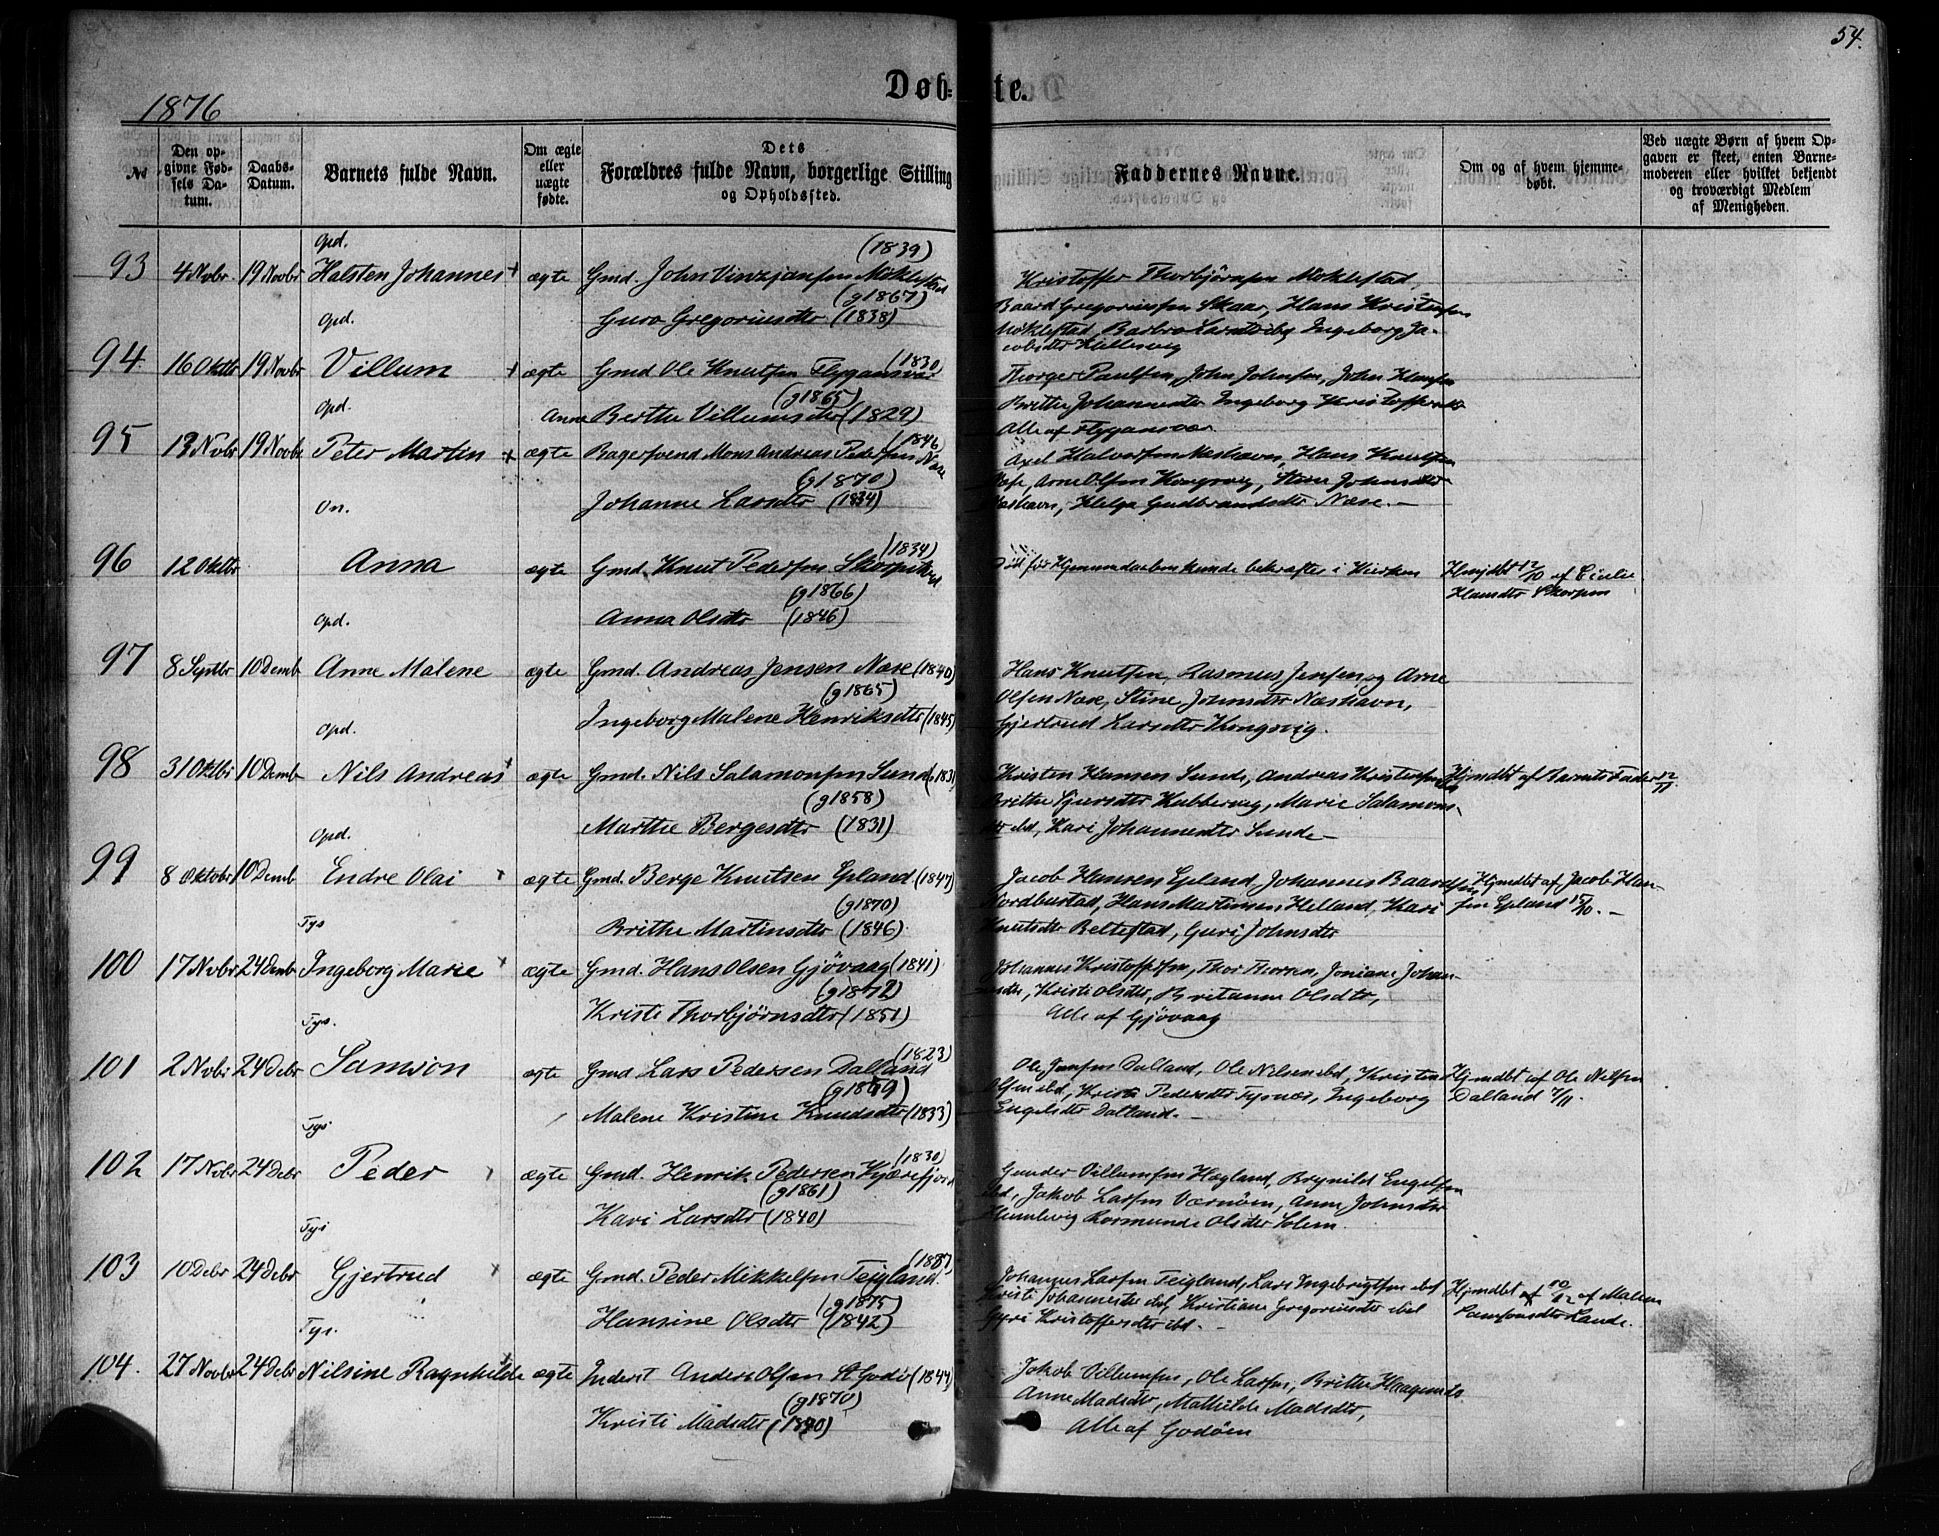 54.
Døb-te.
1876
No
Den opgivne Fødsels Datum.
Daabs-Datum.
Barnets fulde Navn.
Om ægte eller uægte fødte.
Dets Forældres fulde Navn, borgerlige Stilling og Opholdssted.
Faddernes Navne.
Om og af hvem hjemmedøbt.
Ved uægte Børn af hvem Opgaven er skeet, enten Barnemoderen eller hvilket bekjendt og troværdigt Medlem af Menigheden.
Opd.
(1839)
93 4 Novbr 19 Novbr Halsten Johannes + ægte Gmd. John Møklestad
Kristoffer Thorbjørnsen Møklestad,
(g1867)
Baard Gregoriussen Skaar, Hans Kristensen
Opd.
Guro Gregoriusdtr (1838)
Møklestad, Barbro Ingeborg Ja-
cobsdtr
(1830)
94 16 Oktbr 19 Novbr Villum + ægte Gmd Ole Knutsen Flygansvær
Thorger Paulsen, John Johnsen, John Hansen
(g1865)
Brithe Johannesdtr Ingeborg Kristoffersdtr
Opd.
Anna Berthe Villumsdtr (1829)
Alle af Flygansvær
(1846)
95 19 Novbr Peter Martin + ægte Bagersvend Mons Andreas Pedersen Næse
Axel Halvorsen Næshavn, Hans Knutsen
(g1870)
Næse, Arne Olsen Kongsvig, Stine Johnsdtr
On.
Johanne Larsdtr (1834)
Næshavn, Helga Gudbrandsdtr Næse. —
(1834)
96 12 Oktbr Anna ægte Gmd. Knut Pedersen
Død før Hjemmedaaben kunde bekræftes i Kirken
Hmjdbt 12/10 af
(g1866)
Hansdtr Skorpen
Opd.
Anna Olsdtr (1846)
97 8 Septbr 10 Demb Anne Malene ægte Gmd. Andreas Jensen Næse (1840)
Hans Knutsen, Rasmus Jensen og Arne
(g1865)
Olsen Næse, Stine Johnsdtr Næshavn,
Opd.
Ingeborg Malene Henriksdtr (1845)
Gjertrud Larsdtr Kongsvig.
98 31 Oktbr 10 Demb Nils Andreas + ægte Gmd. Nils Salamonsen Sunde (1831)
Kristen Hansen Sunde, Andreas Kristensen
Hjmdbt af Barnets Fader 12/11
(g1858)
Brithe Sjursdtr Kubbervig, Marie Salamons-
Opd.
Marthe Bergesdtr (1831)
dtr ibd, Kari Johannesdtr Sunde —
99 8 Oktober 10 Demb Endre Olai + ægte Gmd. Berge Knutsen Epland (1847)
Jacob Hansen Epland, Johannes Baardsen
Hjmdbt af Jacob Han-
sen Epland 15/10. —
(g1870)
Nordbustad, Hans Martinsen Helland, Kari
Tys
Brithe Martinsdtr (1846)
Knutsdtr Beltestad, Guri Johnsdtr
100 17 Novbr 24 Demb Ingeborg Marie ægte Gmd. Hans Olsen Gjøvaag (1841)
Johannes Kristoffersen, Thor Thorsen, Joniane Johan-
(g1872)
nesdtr, Kristi Olsdtr, Britanne Olsdtr,
Tys.
Kristi Thorbjørnsdtr (1851)
Alle af Gjøvaag
(1823)
101 2 Novbr 24 Debr Samson ægte Gmd Lars Pedersen Dalland
Ole Jensen Dalland, Ole Nilsen ibd, Kristen
Hjmdbt af Ole Nilsen
Dalland 7/11
Olsen ibd, Kristi Pedersdtr Tysnæs, Ingeborg
Tys.
Malene Kristine Knudsdtr (1833)
Engelsdtr Dalland. —
(1830)
102 17 Novbr 24 Debr Peder ægte Gmd. Henrik Pedersen Kjærefjord
Gunder Villumsen Hagland, Brynild Engelsen
(g1861)
ibd, Jakob Larsen Værnøen, Anna Johnsdtr
Tys
Kari Larsdtr (1840)
Hummelvig Rosmunde Olsdtr Solem
103 10 Debr 24 Debr Gjertrud ægte Gmd. Peder Mikkelsen Teigland
Johannes Larsen Teigland, Lars Ingebrigtsen ibd
Hjmdbt 10/12 af Malene
Samsonsdtr Lande.
(g1875)
Kristi Johannesdtr ibd, Kristiane Gregoriusdtr ibid
Tys.
Hansine Olsdtr (1842)
Gyri Kristoffersdtr ibd. —
104. 27 Novbr 24 Debr Nilsine Ragnhilde ægte Inderst Anders Olsen St Godø (1844)
Jakob Villumsen, Ole Larsen, Brithe Haagensdtr
(g1870)
Anne Madsdtr, Mathilde Madsdtr,
Kristi Madsdtr (1840)
Alle af Godøen